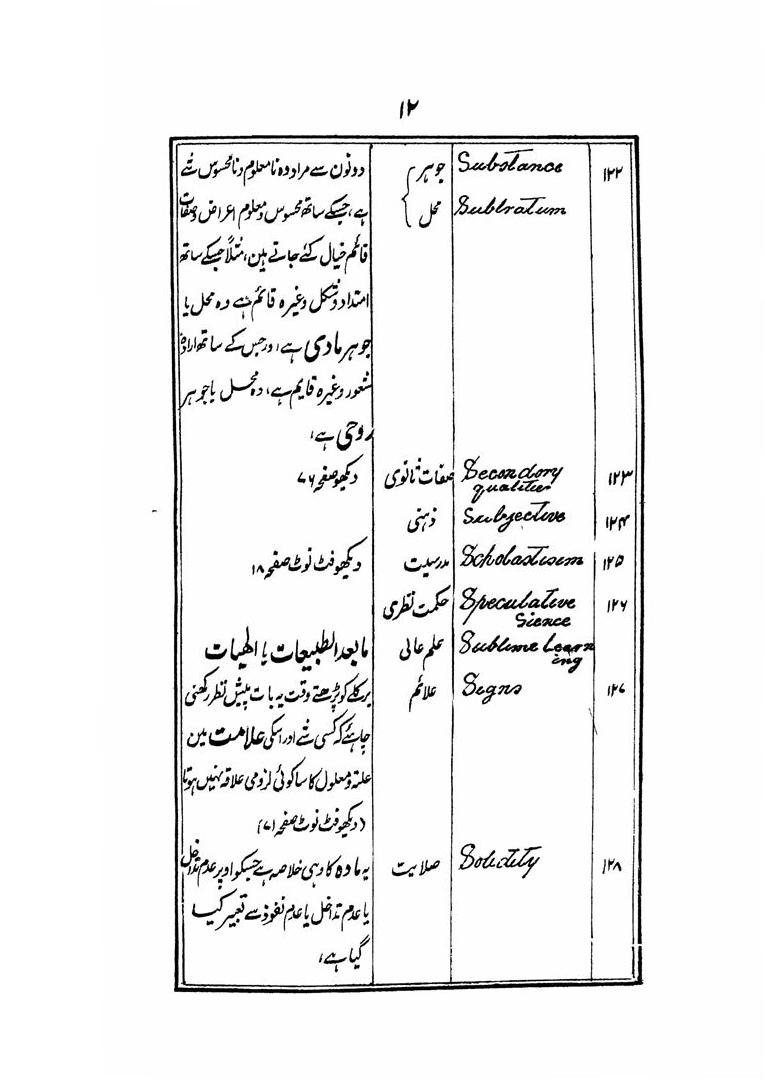 ۱۲
۱۲۲ Substance جوہر دونون سے مراد وہ نامعلوم و نامحسوس شے
Subtratum محل ہے، جسکے ساتھ محسوس و معلوم اعراض و صفات
قائم خیال کئے جاتے ہین، مثلاً جسکے ساتھ
امتداد و شکل وغیرہ قائم ہے وہ محل یا
جوہر مادی ہے، اور جس کے ساتھ ارادہ
شعور وغیرہ قایم ہے، وہ محل یا جوہر
روحی ہے،
۱۲۳ Secondory صفات ثانوی دیکھو صفحہ ۷۶
qualities
۱۲۴ Subjective ذہنی
۱۲۵ Scholastisem مدرسیت دیکھو فٹ نوٹ صفحہ ۱۸
۱۲۶ Speculative حکمت نظری
Sience
Sublime Learn علم عالی مابعد الطبیعات یا الٰہیات
ing
۱۲۷ Segns علائم برکلے کو پڑھتے وقت یہ بات پیش نظر رکھنی
چاہئے کہ کسی شے اور اسکی علامت مین
علت و معلول کا سا کوئی لزومی علاقہ نہیں ہوتا
(دیکھو فٹ نوٹ صفحہ ۷۱)
۱۲۸ Solidity صلابت یہ مادہ کا وہی خلاصہ ہے جسکو اوپر عدم تداخل
یا عدم تداخل یا عدم نفوذ سے تعبیر کیا
گیا ہے،